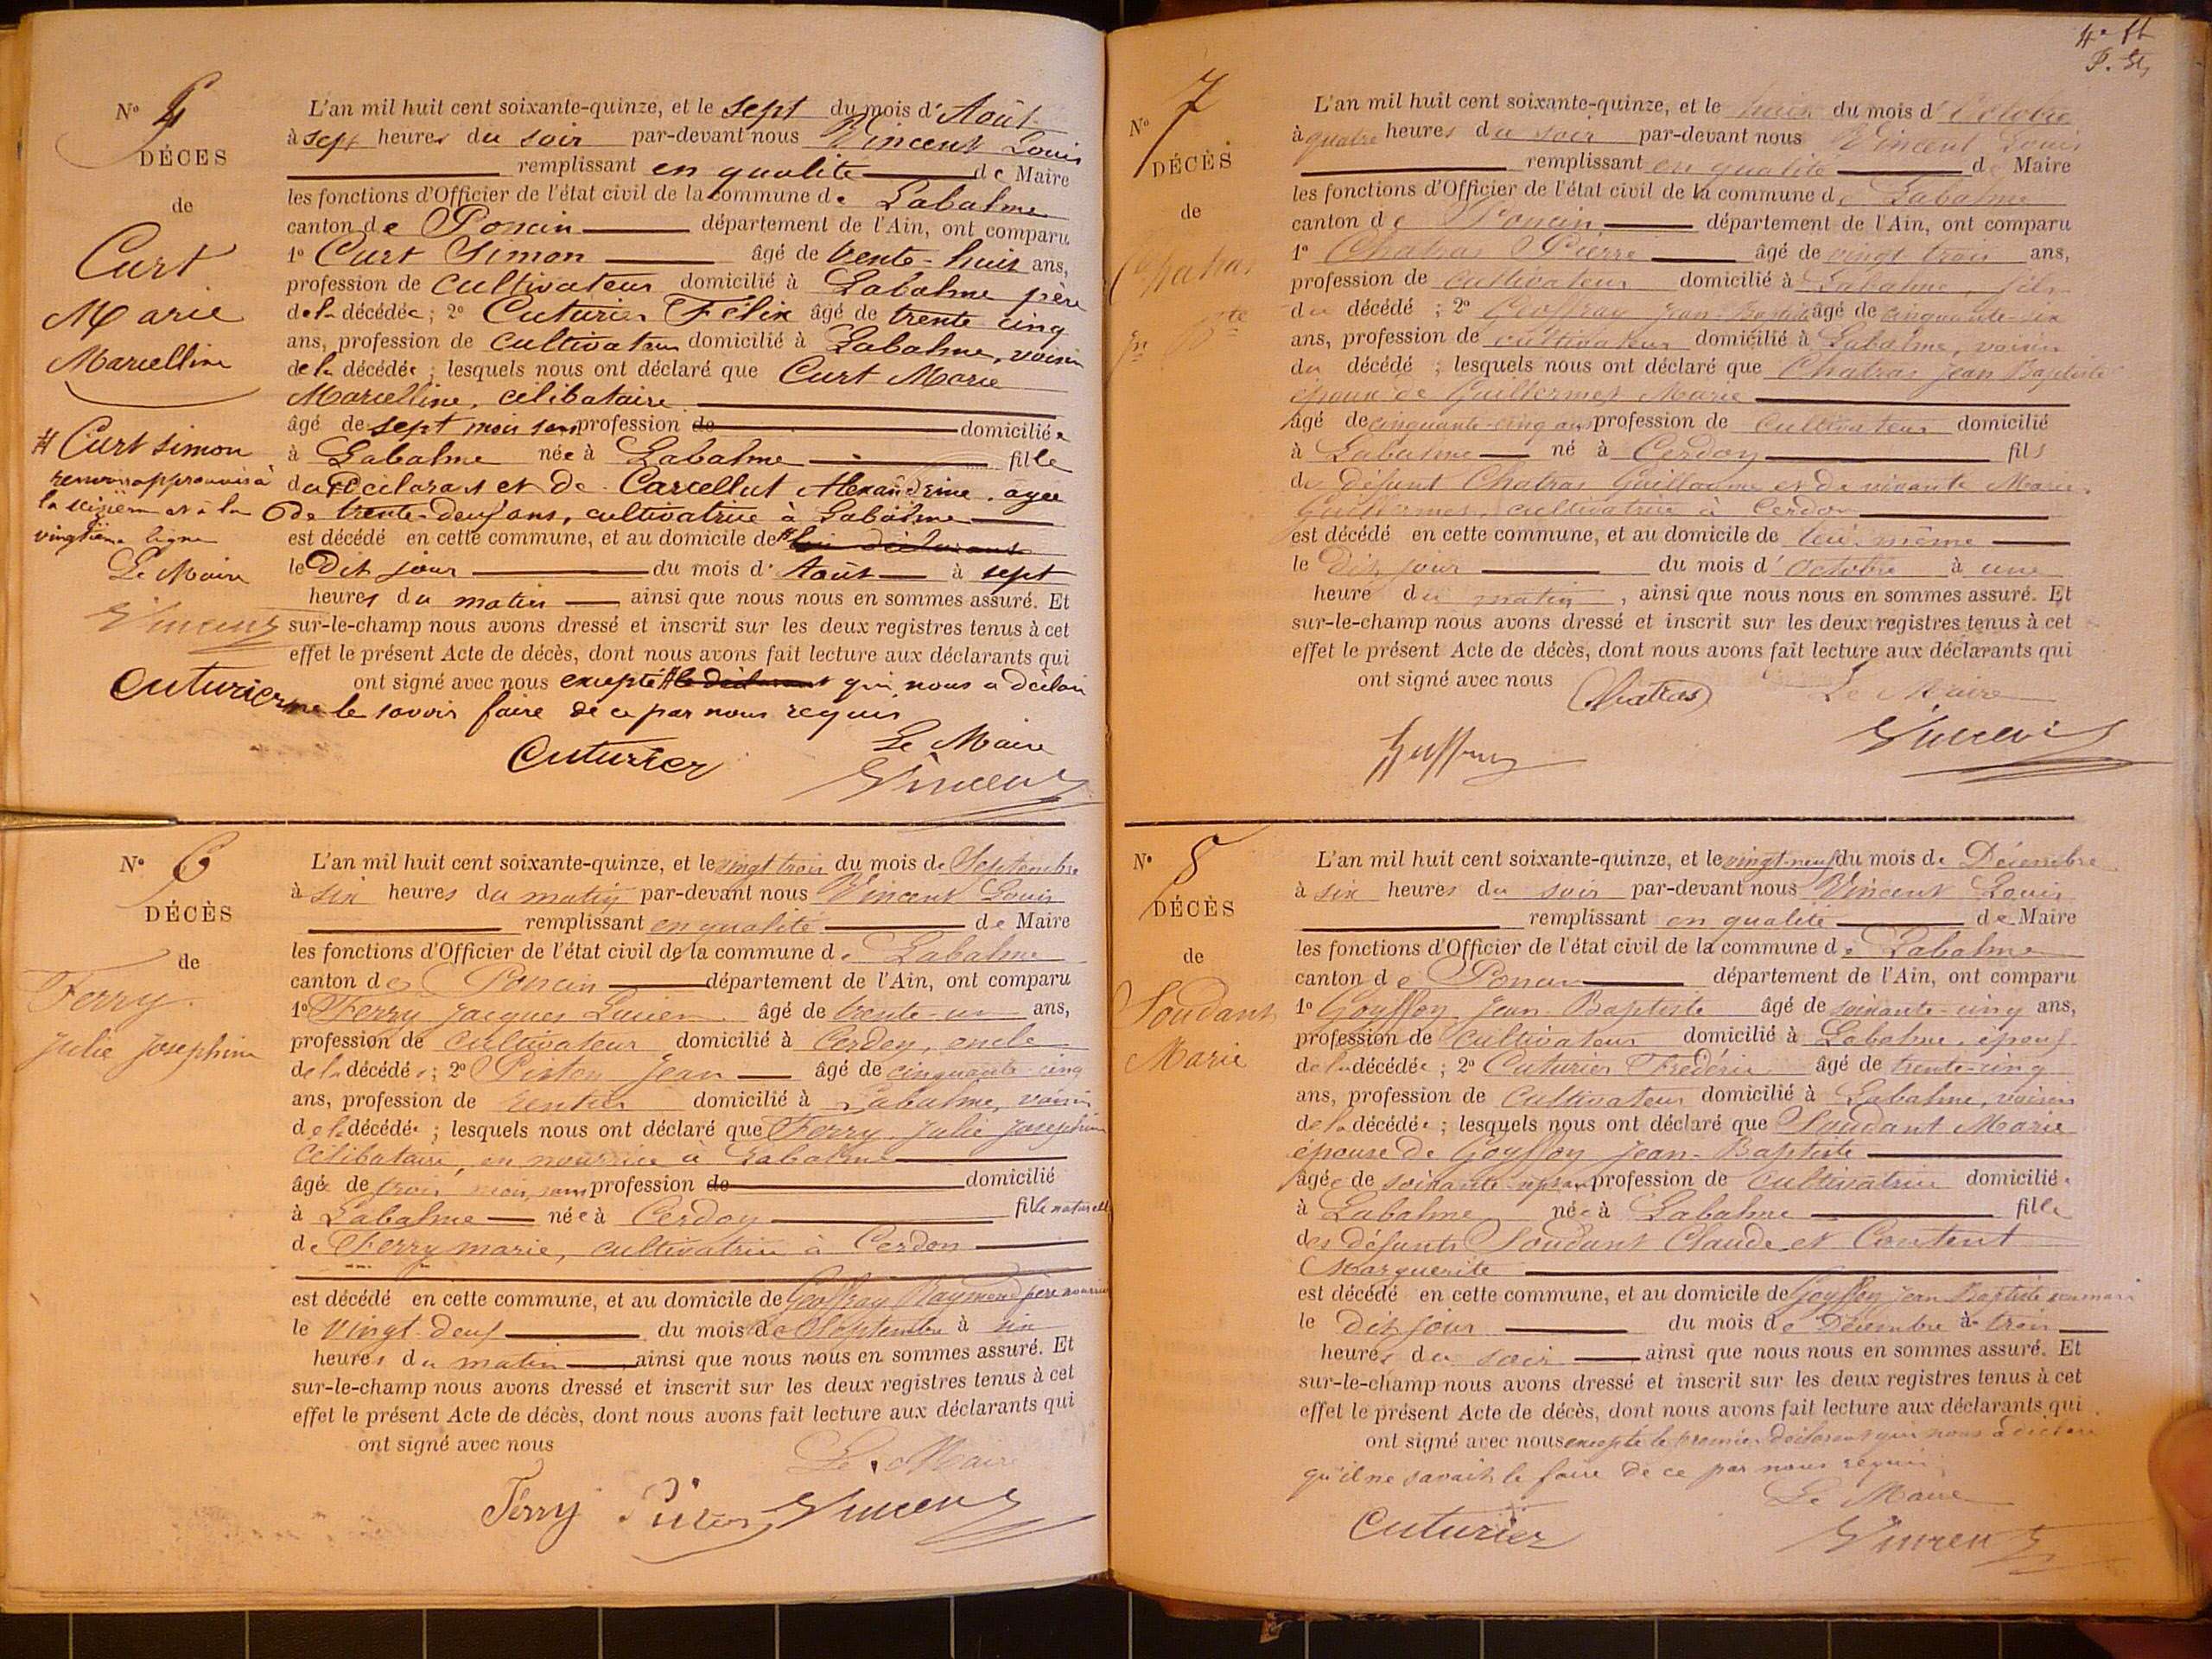 Nº
DÉCES
de
Curt
Marie
Marcelline
# Curt Simon
renvoi approuvé à
la seizième et à la
vingtième ligne
Le Maire
Vincent
L'an mil huit cent soixante-quinze, et le sept du mois d'Août
à sept heures du soir par-devant nous Vincent Louis
remplissant en qualité de Maire
les fonctions d'Officier de l'état civil de la commune de Labalme
canton de Poncin département de l'Ain, ont comparu
1º Curt Simon âgé de trente-huit ans,
profession de cultivateur domicilié à Labalme père
de la décédée; 2º Cuturier Félix âgé de trente cinq
ans, profession de cultivateur domicilié à Labalme, voisin
de la décédée; lesquels nous ont déclaré que Curt Marie
Marcelline, célibataire
âgé de sept mois sans profession de domiciliée
à Labalme née à Labalme fille
du déclarant et de Carcellut Alexandrine, agée
de trente-deux ans, cultivatrice à Labalme
est décédé en cette commune, et au domicile de #
le Dit jour du mois d'Août à sept
heures du matin ainsi que nous nous en sommes assuré. Et
sur-le-champ nous avons dressé et inscrit sur les deux registres tenus à cet
effet le présent Acte de décès, dont nous avons fait lecture aux déclarants qui
ont signé avec nous excepté # le déclarant qui nous a déclaré
ne le savoir faire de ce par nous requis
Cuturier
Cuturier
Le Maire
Vincent
Nº 6
DÉCÈS
de
Ferry
Julie Josephine
L'an mil huit cent soixante-quinze, et le vingt trois du mois de Septembre
à six heures du matin par-devant nous Vincent Louis
remplissant en qualité de Maire
les fonctions d'Officier de l'état civil de la commune de Labalme
canton de Poncin département de l'Ain, ont comparu
1º Ferry Jacques Lucien âgé de trente-un ans,
profession de cultivateur domicilié à Cerdon, oncle
de la décédée; 2º Piston Jean âgé de cinquante-cinq
ans, profession de rentier domicilié à Labalme, voisin
de la décédée; lesquels nous ont déclaré que Ferry Julie Josephine
Célibataire, en nourrice à Labalme
âgée de trois mois, sans profession de domicilié
à Labalme née à Cerdon fille naturelle
de Ferry marie, cultivatrice à Cerdon
est décédé en cette commune, et au domicile de Geoffray Raymond père nourricier
le vingt-deux du mois de Septembre à six
heures du matin ainsi que nous nous en sommes assuré. Et
sur-le-champ nous avons dressé et inscrit sur les deux registres tenus à cet
effet le présent Acte de décès, dont nous avons fait lecture aux déclarants qui
ont signé avec nous
Le Maire
Ferry Piston Vincent
Nº 7
DÉCÈS
de
Chatras
Jn Bte
L'an mil huit cent soixante-quinze, et le huit du mois d'Octobre
à quatre heures du soir par-devant nous Vincent Louis
remplissant en qualité de Maire
les fonctions d'Officier de l'état civil de la commune de Labalme
canton de Poncin, département de l'Ain, ont comparu
1º Chatras Pierre âgé de vingt trois ans,
profession de cultivateur domicilié à Labalme, fils
du décédé; 2º Geoffray Jean-Baptiste âgé de cinquante-six
ans, profession de cultivateur domicilié à Labalme, voisin
du décédé; lesquels nous ont déclaré que Chatras Jean Baptiste
époux de Guillermet Marie
âgé de cinquante-cinq ans profession de cultivateur domicilié
à Labalme né à Cerdon fils
de défunt Chatras Guillaume et de vivante Marie
Guillermet, cultivatrice à Cerdon
est décédé en cette commune, et au domicile de lui-même
le Dit jour du mois d'octobre à une
heure du matin, ainsi que nous nous en sommes assuré. Et
sur-le-champ nous avons dressé et inscrit sur les deux registres tenus à cet
effet le présent Acte de décès, dont nous avons fait lecture aux déclarants qui
ont signé avec nous
Chatras
Le Maire
Geoffray
Vincent
Nº 8
DÉCÈS
de
Soudant
Marie
L'an mil huit cent soixante-quinze, et le vingt-neuf du mois de Décembre
à six heures du soir par-devant nous Vincent Louis
remplissant en qualité de Maire
les fonctions d'Officier de l'état civil de la commune de Labalme
canton de Poncin département de l'Ain, ont comparu
1º Goyffon Jean-Baptiste âgé de soixante-cinq ans,
profession de cultivateur domicilié à Labalme, époux
de la décédée; 2º Cuturier Frédéric âgé de trente-cinq
ans, profession de Cultivateur domicilié à Labalme, voisin
de la décédée; lesquels nous ont déclaré que Soudant Marie
épouse de Goyffon Jean-Baptiste
âgée de soixante profession de cultivatrice domiciliée
à Labalme née à Labalme fille
des défunts Soudant Claude et Content
Marguerite
est décédé en cette commune, et au domicile de Goyffon Jean Baptiste son mari
le Dit jour du mois de Décembre à trois
heures du soir ainsi que nous nous en sommes assuré. Et
sur-le-champ nous avons dressé et inscrit sur les deux registres tenus à cet
effet le présent Acte de décès, dont nous avons fait lecture aux déclarants qui
ont signé avec nous excepté le premier déclarant qui nous a déclaré
qu'il ne savait le faire de ce par nous requis
Le Maire
Cuturier
Vincent